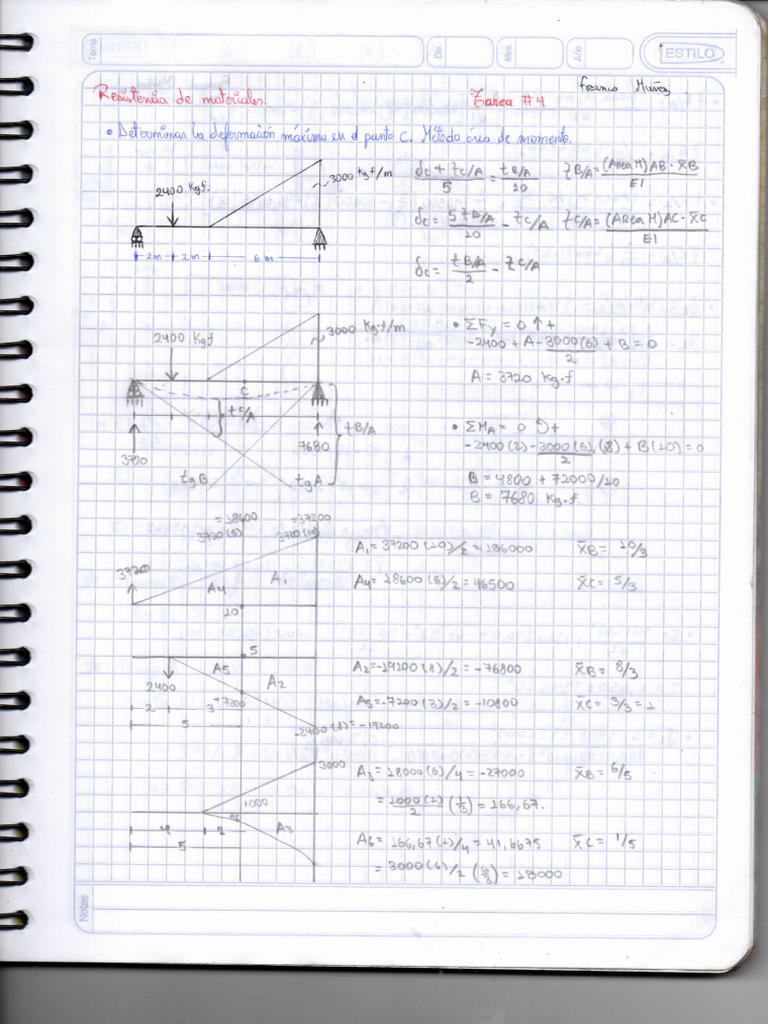 Tema
Día
Mes
Año
ESTILO
Franco Muñoz.
Resistencia de materiales.
Tarea #4
• Determinar la deformación máxima en el punto C. Método área de momento.
2400 Kgf.
3000 Kgf/m
2m 2m 6m
δc + tC/A / 5 = tB/A / 10
tB/A = (Area M)AB · X̄B / EI
δc = 5 tB/A / 10 - tC/A
tC/A = (Area M)AC · X̄C / EI
δc = tB/A / 2 - tC/A
2400 Kgf
3000 Kg·f/m
C
tC/A
tB/A
3720
7680
tgB
tgA
• ΣFy = 0 ↑+
-2400 + A - 3000(6)/2 + B = 0
A = 3720 Kg·f
• ΣMA = 0 ↺+
-2400(2) - 3000(6)/2 (8) + B(10) = 0
B = 4800 + 72000/10
B = 7680 Kg·f
=18600 =37200
3720(5) 3720(10)
3720
A4
A1
10
A1 = 37200(10)/2 = 186000
X̄B = 10/3
A4 = 18600(5)/2 = 46500
X̄C = 5/3
5
A5
A2
2400
-7200
2 3
5
-2400(8) = -19200
A2 = -19200(8)/2 = -76800
X̄B = 8/3
A5 = -7200(3)/2 = -10800
X̄C = 3/3 = 1
3000
1000
A6
A3
4 1
5
A3 = 18000(6)/4 = -27000
X̄B = 6/5
= 1000(1)/2 (1/3) = 166,67.
A6 = 166,67(1)/4 = 41,6675
X̄C = 1/5
= 3000(6)/2 (6/3) = 18000
Notas